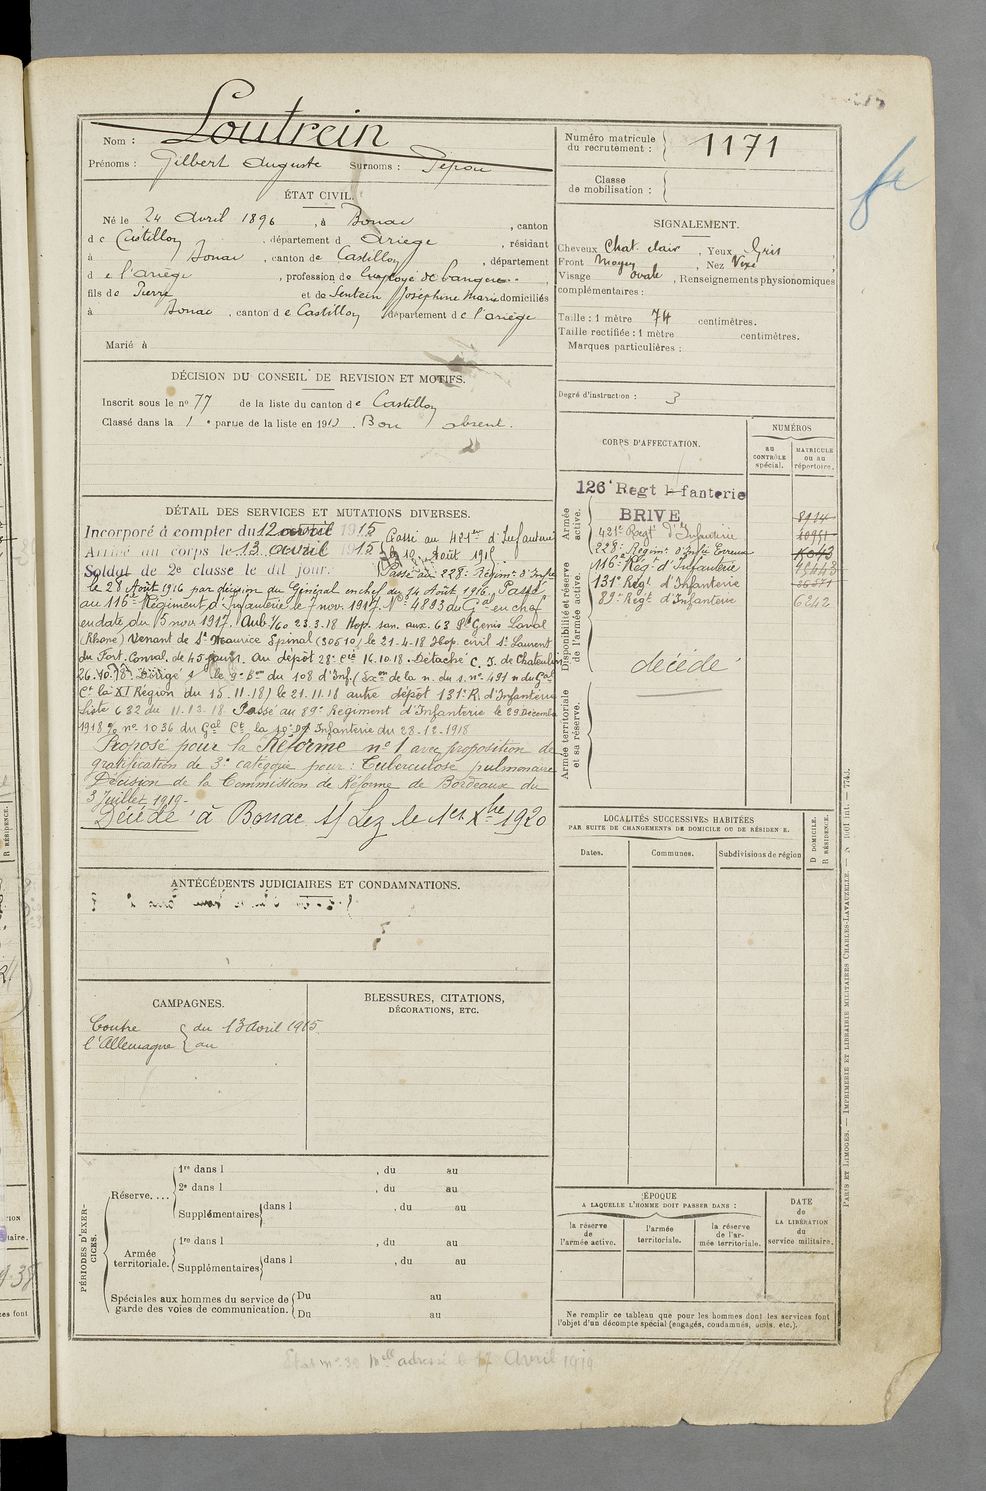 Nom : Loutrein
Prénoms : Gilbert Auguste Surnoms : Pépou
Numéro matricule du recrutement : 1171
Classe de mobilisation :
ÉTAT CIVIL.
Né le 24 Avril 1896, à Bonac, canton
de Castillon, département d Ariège, résidant
à Bonac, canton de Castillon, département
de l'Ariège, profession de Employé de
fils de Pierre et de Sentein Joséphine Marie domiciliés
à Bonac, canton de Castillon département de l'ariège
Marié à
SIGNALEMENT.
Cheveux Chat. clair, Yeux Gris
Front moyen, Nez
Visage ovale, Renseignements physionomiques
complémentaires :
Taille : 1 mètre 74 centimètres.
Taille rectifiée : 1 mètre centimètres.
Marques particulières :
DÉCISION DU CONSEIL DE REVISION ET MOTIFS.
Inscrit sous le no 77 de la liste du canton de Castillon
Classé dans la 1 e partie de la liste en 191 . Bon absent.
Degré d'instruction : 3
DÉTAIL DES SERVICES ET MUTATIONS DIVERSES.
Incorporé à compter du 12 avril 1915
Arrivé au corps le 13 avril 1915
Soldat de 2e classe le dit jour.
Passé au 421eme d'Infanterie
le 10 Août 1915
Passé au 228e Régimt d'Infie
le 28 Août 1916 par décision du Général en chef du 14 Août 1916. Passé
au 116e Régiment d'Infanterie le 7 nov. 1917. No 4893 du Gal en chef
en date du 15 nov 1917. 23.3.18 Hop. san. aux. 63 St Genis Laval
(Rhône) Venant de St Maurice Spinal (30510) le 21-4-18 Hop. civil St Laurent
du Pont. Conval. de 45 jours. Au dépôt 28e Cie 16.10.18. Détaché C. I. de Chateaulin
26.10.18. Dirigé le 9e Bon du 108 d'Inf. (Exon de la n. du s. no 491 n du Gal
Ct la XI Région du 15.11.18) le 21.11.18 autre dépôt 131e R. d'Infanterie
liste 632 du 11.12.18 Passé au 89e Regiment d'Infanterie le 29 Décembre
1918 no 1036 du Gal Ct la 10e Don Infanterie du 28-12-1918
Proposé pour la Réforme no 1 avec proposition de
gratification de 3e catégorie pour : Tuberculose pulmonaire
Décision de la Commission de Réforme de Bordeaux du
3 Juillet 1919.
Décédé à Bonac s/ Lez le 1er Xbre 1920
CORPS D'AFFECTATION.
NUMÉROS
au CONTRÔLE spécial.
MATRICULE ou au répertoire.
Armée active.
126e Regt Infanterie
BRIVE
421e Regt d'Infanterie
228e Régimt d'Infie Evreux
116e Regt d'Infanterie
131e Regt d'Infanterie
89e Regt d'Infanterie 6242
Disponibilité et réserve de l'armée active.
décédé
Armée territoriale et sa réserve.
LOCALITÉS SUCCESSIVES HABITÉES
PAR SUITE DE CHANGEMENTS DE DOMICILE OU DE RÉSIDENCE.
Dates. Communes. Subdivisions de région
D DOMICILE.
R RÉSIDENCE.
ANTÉCÉDENTS JUDICIAIRES ET CONDAMNATIONS.
CAMPAGNES.
Contre l'Allemagne
du 13 avril 1915
au
BLESSURES, CITATIONS,
DÉCORATIONS, ETC.
PÉRIODES D'EXERCICES.
Réserve....
1re dans l , du au
2e dans l , du au
Supplémentaires dans l , du au
Armée territoriale.
1re dans l , du au
Supplémentaires dans l , du au
Spéciales aux hommes du service de garde des voies de communication.
Du au
Du au
ÉPOQUE
A LAQUELLE L'HOMME DOIT PASSER DANS :
la réserve de l'armée active.
l'armée territoriale.
la réserve de l'armée territoriale.
DATE de LA LIBÉRATION du service militaire.
Ne remplir ce tableau que pour les hommes dont les services font
l'objet d'un décompte spécial (engagés, condamnés, omis, etc.).
PARIS ET LIMOGES. — IMPRIMERIE ET LIBRAIRIE MILITAIRES CHARLES-LAVAUZELLE.
adressé le 17 Avril 1919